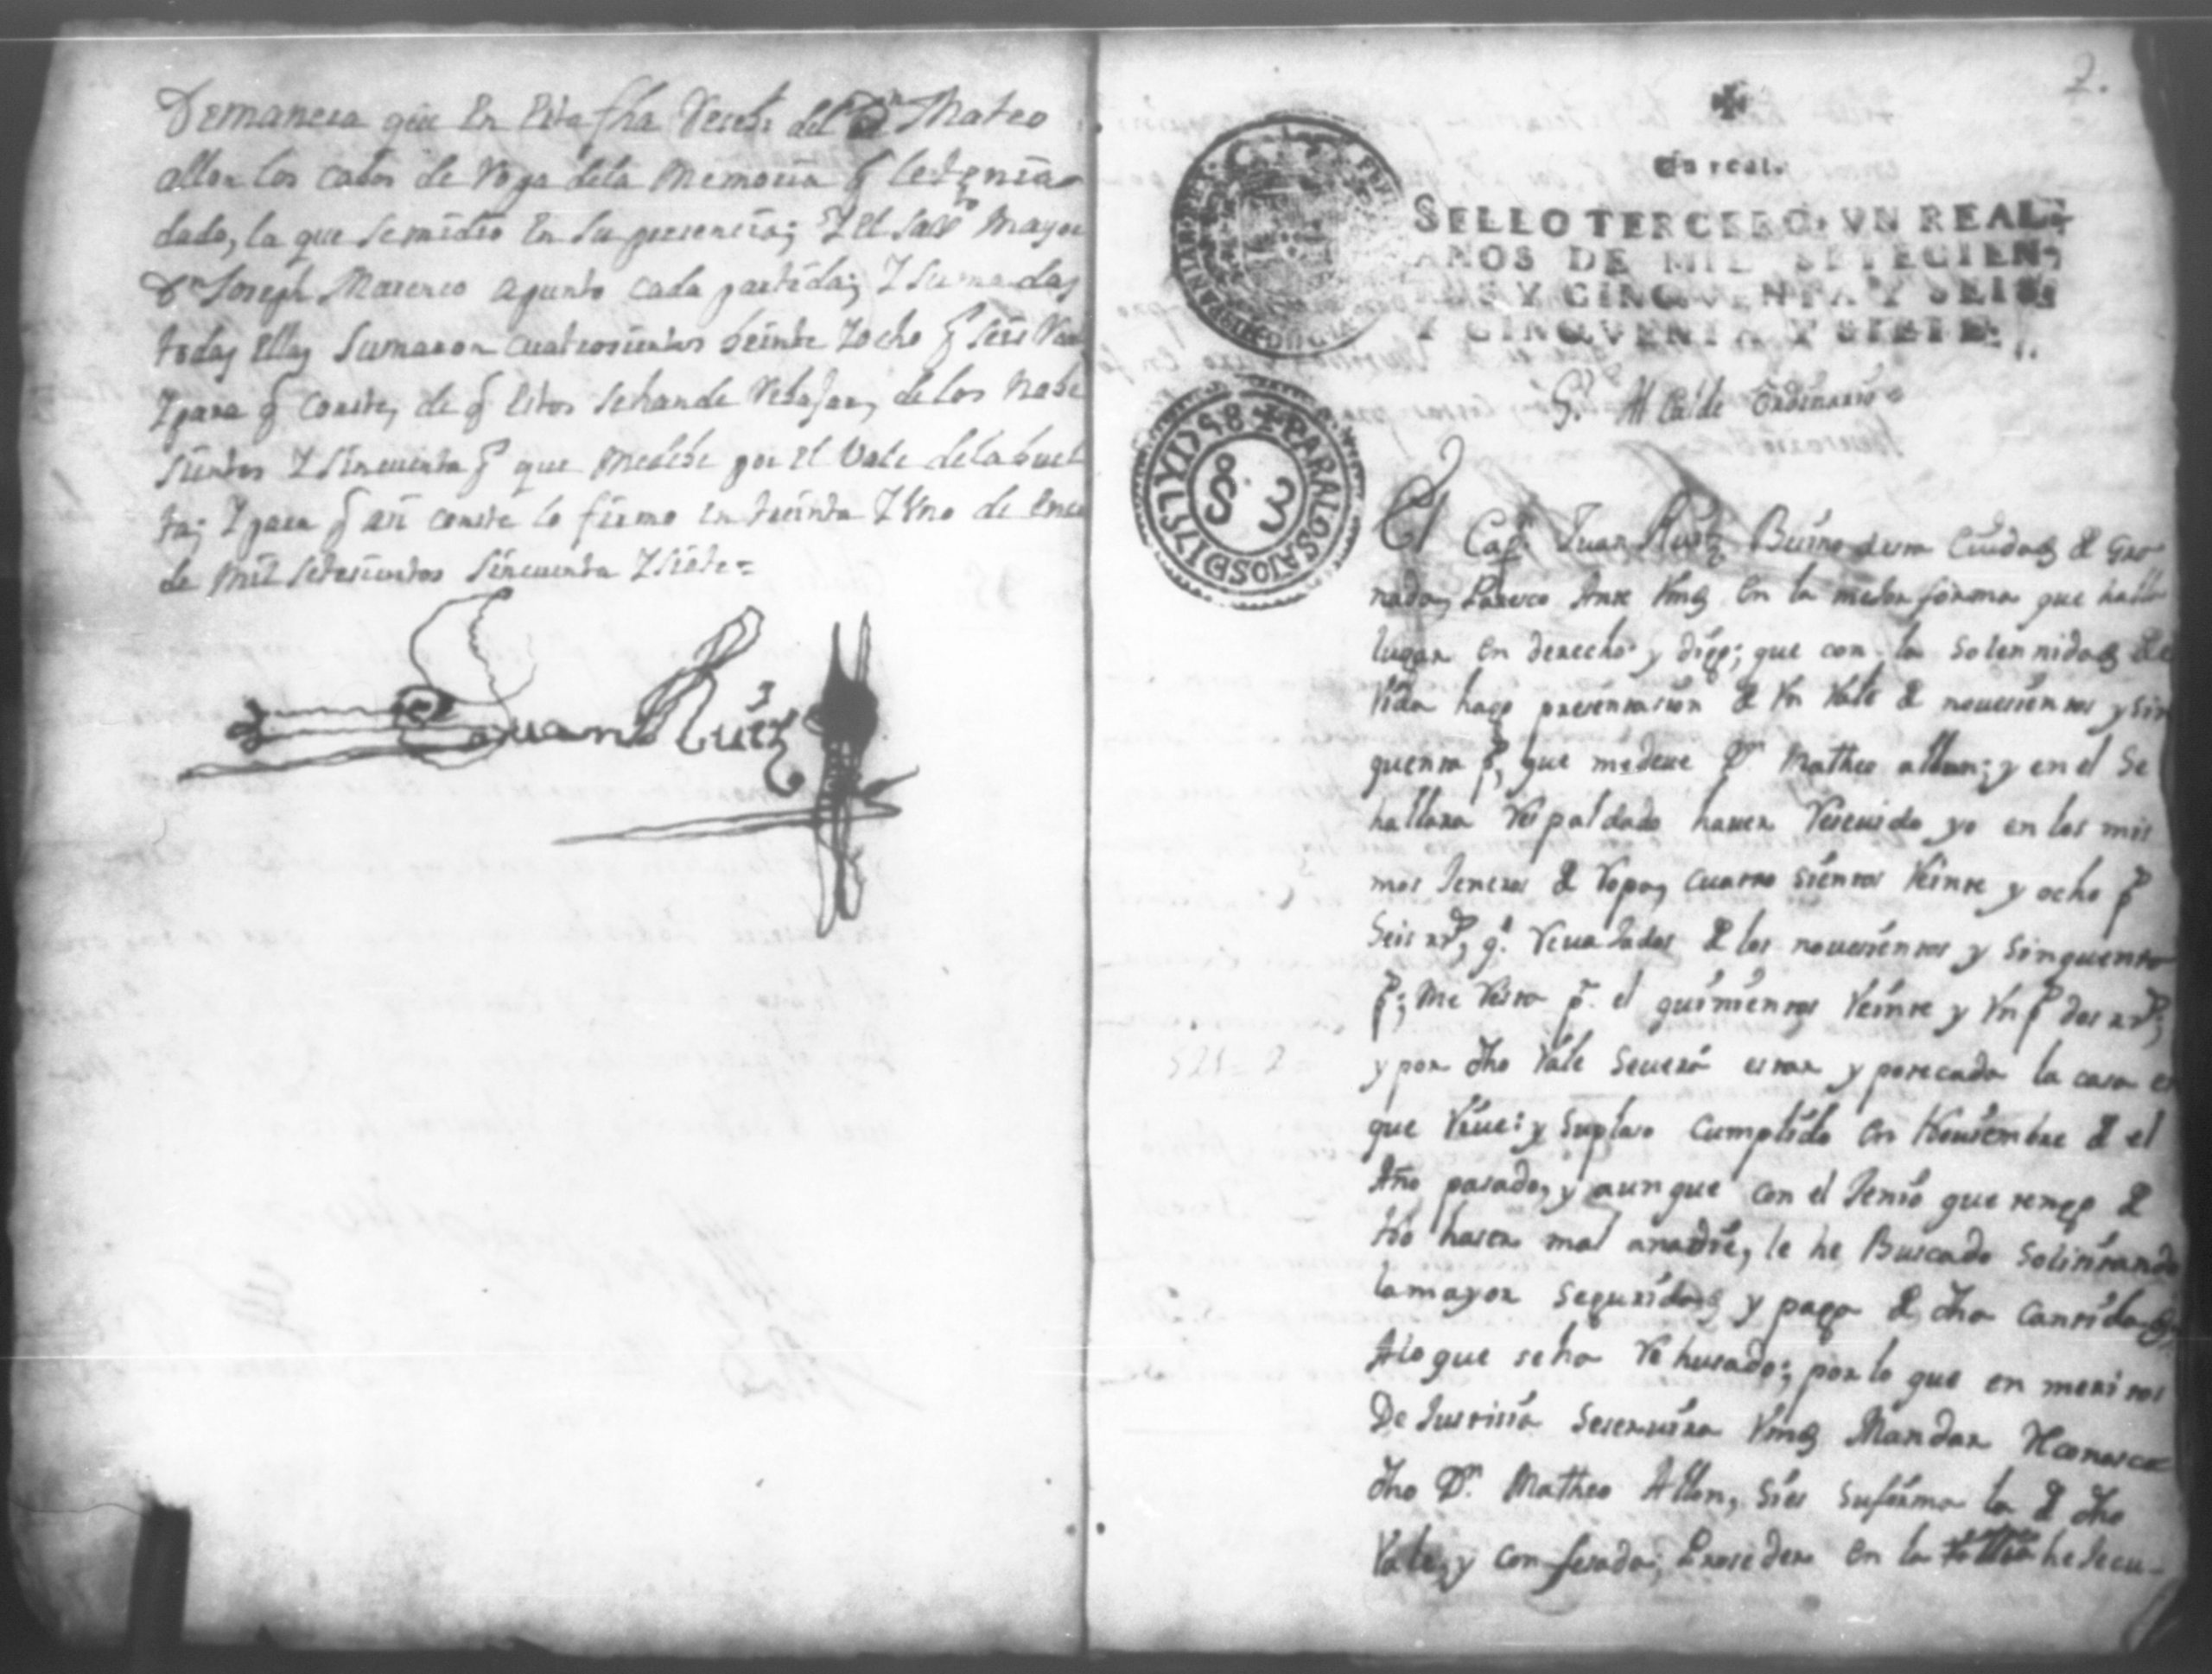 Demanera que En Esta fha Reseb: del Dn Mateo
allon los cabos de Ropa dela memoria q le tenia
dado, la que Semidio En Su presencia; Y el Sarto Mayor
Dn Joseph Marenco apunto cada partida; Y Sumadas
todas Ellas Sumaron cuatrosientos beinte Yocho ps Seis Rea
Y para q Conste, de q Estos Sehande Rebajar, de los Nobe
Sientos Y Sincuenta ps que Medebe por El Vale delabuel
ta; Y para q asi conste lo firmo en treinta YVno de Ene
de Mil Setesientos Sincuenta Ysiete=
Juan Ruiz
2.
Vn real.
SELLO TERCERO, VN REAL,
AÑOS DE MIL SETECIEN,
TOS Y CINQVENTA Y SEIS,
Y CINQVENTA Y SIETE.
PARA LOS AÑOS DE 1757 Y 1758
S. Alcalde Ordinario
El Capn Juan Ruiz Bueno desta Ciudad de Gra
nada, Paresco Ante Vmd en la mejor forma que halla
lugar en derecho y digo; que con la solennidad de
vida hago presentasion de Vn Vale de nouesientos y sin
quenta ps, que medeve Dn Matheo allon; y en el Se
hallara Respaldado hauer Reseuido yo en los mis
mos Jeneros de Ropa, cuatro sientos Veinte y ocho ps
Seis rrs, q. Reuajados de los nouesientos y Sinquenta
ps; me Resta p. el quinientos Veinte y Vn ps dos rrs;
y por dho Vale Seuera estar ypotecada la casa en
que Viue: y Suplaso Cumplido en Nouiembre de el
Año pasado, y aunque con el Jenio que tengo de
No haser mal anadie, le he Buscado Solisitando
lamayor Seguridad y pago de dha Cantidad,
Alo que seha Rehusado; por lo que en meritos
De Justisia Seseruira Vmd Mandar Reconosca
dho Dn Matheo Allon, Sies Sufirma la de dho
Vale, y confesada, Proseder en la hejecu-